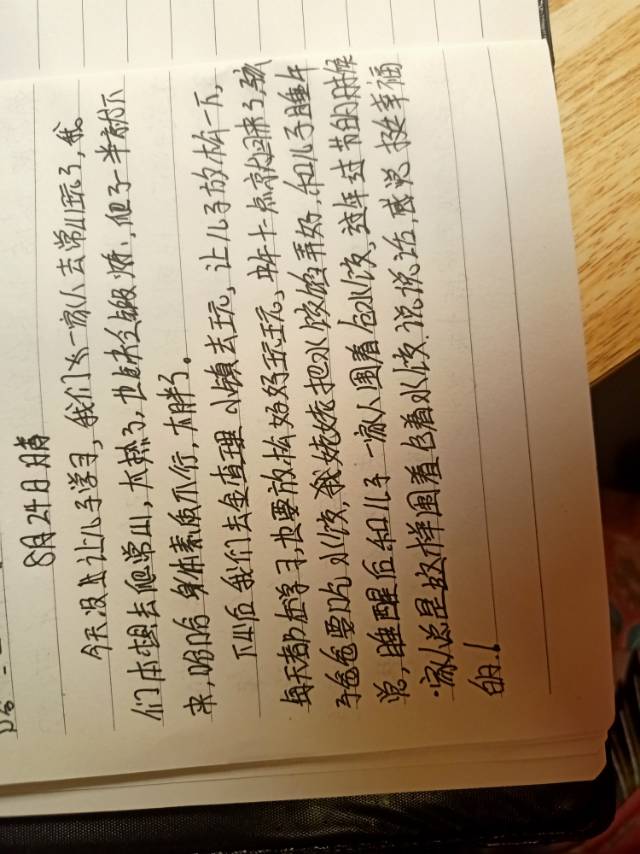 8月24日 晴
今天没让儿子学习,我们一家人去常山玩了,我
们本想去爬常山,太热了,也缺乏锻炼,爬了一半就下
来,哈哈 身体素质不行,太胖了。
下山后我们去金查理小镇去玩,让儿子放松一下,
每天都在学习,也要放松好好玩玩,十点就回来了,孩
子爸爸要吃水饺,我姥姥把水饺馅弄好,和儿子睡午
觉,睡醒后和儿子一家人围着包水饺,过年过节的时候
一家人总是这样围着包着水饺.说说话,感觉挺幸福
的.!